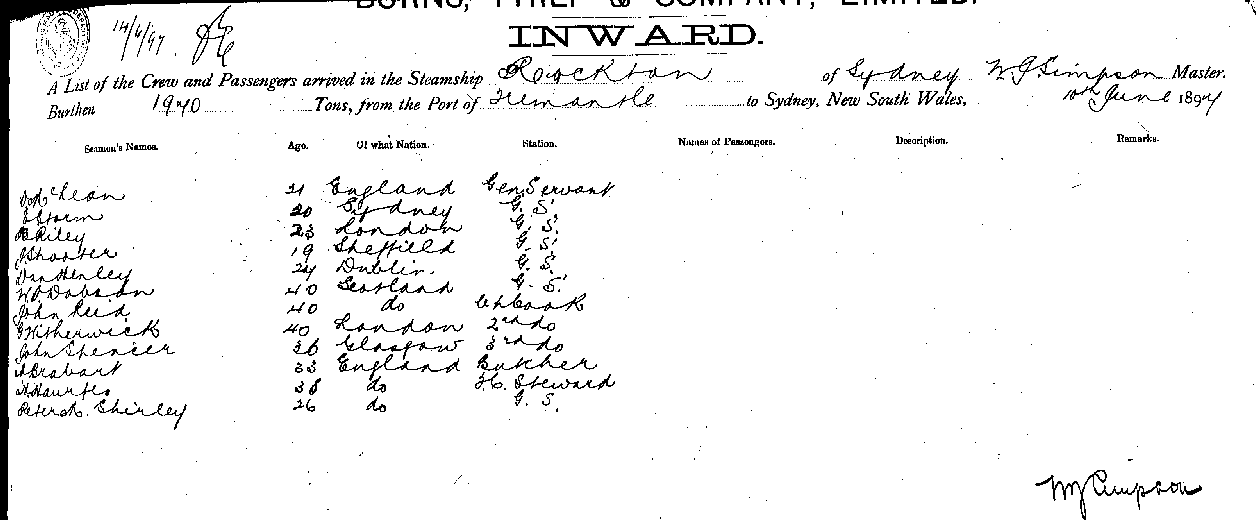 BURNS, PHILP & COMPANY, LIMITED.
14/6/97.
INWARD.
A List of the Crew and Passengers arrived in the Steamship Rockton of Sydney W J Simpson Master.
Burthen 1940 Tons, from the Port of Fremantle to Sydney, New South Wales, 10th June 1897
Seamen's Names. Age. Of what Nation. Station. Names of Passengers. Description. Remarks.
21 England Gen. Servant
Storm 20 Sydney G. S.
Riley 23 London G. S.
J Shooter 19 Sheffield G. S.
Dan Henley 24 Dublin. G. S.
W Dobson 40 Scotland G. S.
John Reid 40 do Ch Cook
G Witherwick 40 London 2nd do
John Spencer 36 Glasgow 3rd do
Brabart 33 England Butcher
38 do Steward
Peter A. Shirley 26 do G. S.
W J Simpson